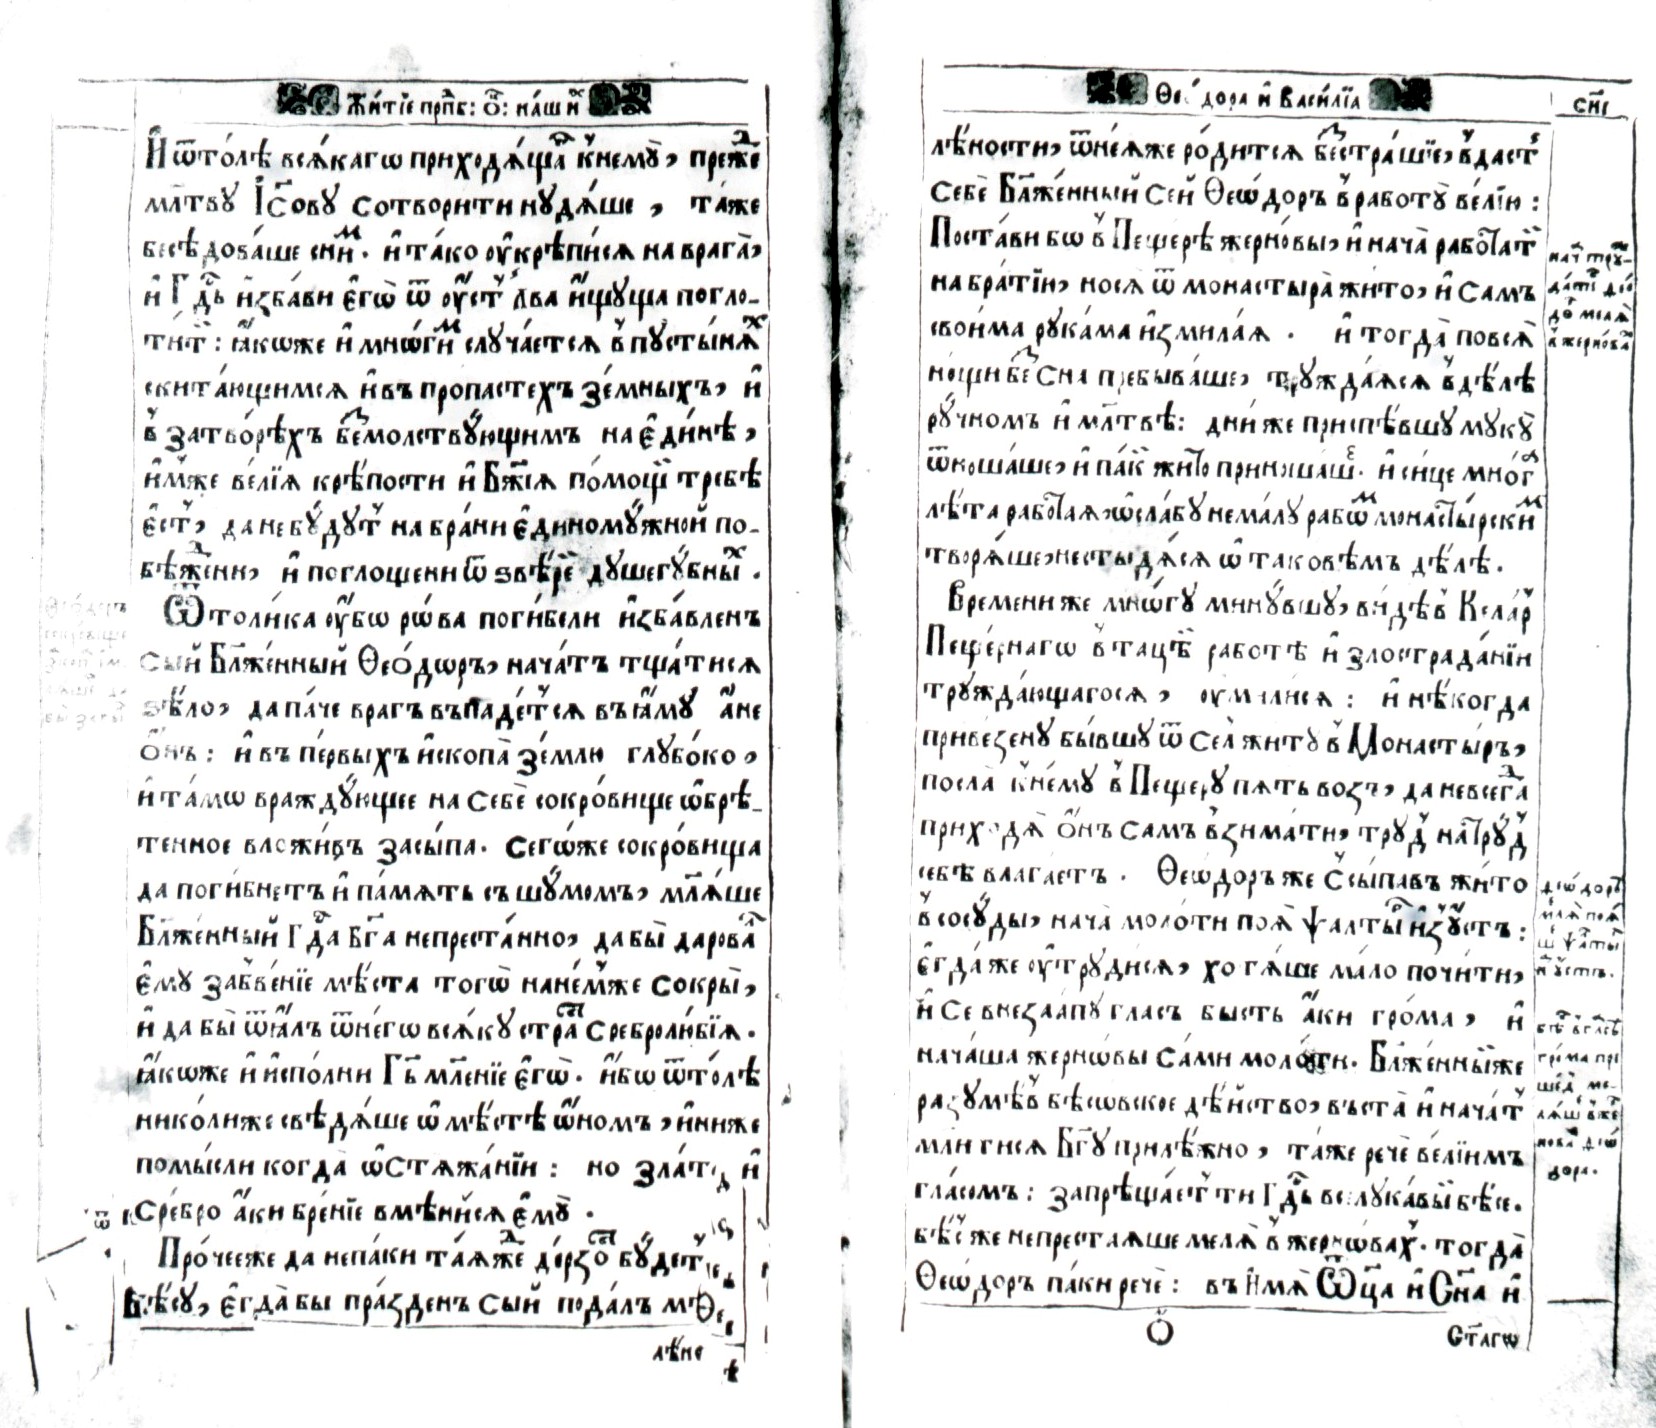 Жи́тїе прп҃б: ѿ҃: на́ши҃х
И҆ ѿто́лѣ всѧ́каго приходѧ́ща к̾нему̀, преж̾де
мл҃тву І҆с҃ову сотворити нудѧ́ше, та́же
бесѣ́доваше сни́м. и҆ та́ко оу҆крѣпи́сѧ на врага̀,
и҆ Гд҃ь и҆зба́ви є҆гѡ̀ ѿ оу҆́ст̾ Лва и҆́щуща погло-
ти́т̾: ꙗ҆́коже и҆ мнѡ́гим слꙋча́етсѧ в̾ пꙋсты́нѧх
скита́ющимсѧ и҆ въ пропастехъ зе́мныхъ, и҆
в̾ затво́рѣхъ безмолствꙋ́ющимъ на є҆ди́нѣ,
и҆́мже ве́лїѧ крѣ́пости и҆ Бж҃їѧ по́мощи требѣ
є҆́ст̾, да не бꙋ́дꙋт̾ на бра́ни є҆диномꙋ́жной по-
бѣжде́ни, и҆ поглощени ѿ ѕвѣ́ре дꙋшегꙋ́бных.
Ѿтоли́ка оу҆́бо рѡ́ва поги́бели и҆зба́вленъ
сый Бл҃же́нный Ѳео́дѡръ, нача́тъ тща́тисѧ
ѕѣ́ло, да па́че врагъ въпаде́тсѧ въ ꙗ҆́мꙋ а҆́не
ѻ҆́нъ: и҆ въ пе́рвыхъ и҆скопа̀ зе́млю глꙋбо́ко,
и҆ та́мѡ враждꙋ́ющее на себѐ сокро́вище ѡ҆брѣ́-
тенное вложи́въ засы́па. Сегѡ́же сокро́вища
да поги́бнетъ и҆ па́мѧть съ шꙋ́момъ, мл҃ѧ́ше
Бл҃же́нный Гд҃а Бг҃а непреста́нно, да бы̀ дарова́л
є҆мꙋ забве́нїе мѣ́ста тогѡ̀ на не́мже сокры̀,
и҆ да бы̀ ѿꙗ҆́лъ ѿ негѡ всѧ́кꙋ стра́сть сребролю́бїѧ.
ꙗ҆́коже и҆ и҆спо́лни Гь҃ мл҃е́нїе є҆гѡ̀. и҆́бо ѿто́лѣ
нико́лиже свѣ́дѧше ѡ҆ мѣ́стѣ ѡ҆́номъ, и҆ ниже
помы́сли когда̀ ѡ҆ стѧжа́нїи: но зла́то и҆
сре́бро а҆́ки бре́нїе вмѣни́сѧ є҆мꙋ̀.
Про́чееже да не па́ки та́ѧжде де́рзость бꙋ́дет̾
бѣ́сꙋ, є҆гда̀ бы пра́зденъ сый подалъ мѣ
лѣ́нс
Ѳео́дора и҆ Васи́лїа
сн҃і
лѣ́ности, ѿ неѧ́же ро́дитсѧ безстра́шїе, вдаст̾
себѐ Бл҃же́нный сей Ѳеѡ́доръ в̾ работꙋ̀ ве́лїю:
Поста́ви бо в̾ Пещерѣ жерно́вы, и҆ нача̀ работат̾
на бра́тїи, носѧ̀ ѿ монастырѧ̀ жи́то, и҆ самъ
свои́ма рꙋка́ма и҆змила́ѧ. и҆ тогда̀ по всѧ̀
но́щи без̾ сна пребыва́ше, трꙋжда́ѧсѧ в̾ дѣ́лѣ
рꙋ́чномъ и҆ мл҃твѣ: дни́же приспѣ́вшꙋ мꙋкꙋ̀
ѿноша́ше, и҆ па́к̾ жи́то приноша́ше. и҆ си́це мно́га
лѣ́та рабо́таѧ, ѡ҆сла́бꙋ нема́лꙋ рабѡм монасты́рским
творѧ́ше, не стыдѧ́сѧ ѡ҆ таковѣ́мъ дѣ́лѣ.
Времени же мнѡ́гꙋ минꙋ́вшꙋ, ви́дѣв̾ Кела́р̾
Пеще́рнагѡ в̾ тацѣ́й работѣ и҆ злострада́нїи
трꙋжда́ющагосѧ, оу҆мили́сѧ: и҆ нѣ́когда
приве́зенꙋ бы́вшꙋ ѿ сел̾ житꙋ в̾ Монасты́ръ,
посла̀ к̾не́мꙋ в̾ Пещерꙋ пѧть возъ, да не всегда̀
приходѧ̀ ѻ҆́нъ самъ взима́ти, трꙋд̾ на трꙋд̾
себѣ влага́етъ. Ѳеѡ́доръ же ссы́павъ жи́то
в̾ сосꙋ́ды, нача̀ моло́ти поѧ̀ ѱалты́р и҆зꙋ́стъ:
є҆гда́ же оу҆трꙋди́сѧ, хотѧ́ше ма́ло почи́ти,
и҆ се внеза́апꙋ гласъ бысть а҆́ки гро́ма, и҆
нача́ша жернѡ́вы са́ми моло́ти. Бл҃же́нныйже
разꙋмѣ́в̾ бѣсѡвское дѣ́йство, въста̀ и҆ нача́т̾
мл҃и́тисѧ Бг҃ꙋ прилѣ́жно, та́же речѐ ве́лїимъ
гла́сомъ: запреща́ет̾ ти Гд҃ь вселꙋка́вый бѣ́се.
бѣ́с̾ же не престаѧше мелѧ̀ в̾ жернѡ́вах̾. тогда̀
Ѳеѡ́доръ па́ки речѐ: въ и҆́мѧ Ѿца̀ и҆ Сн҃а и҆
ст҃агѡ